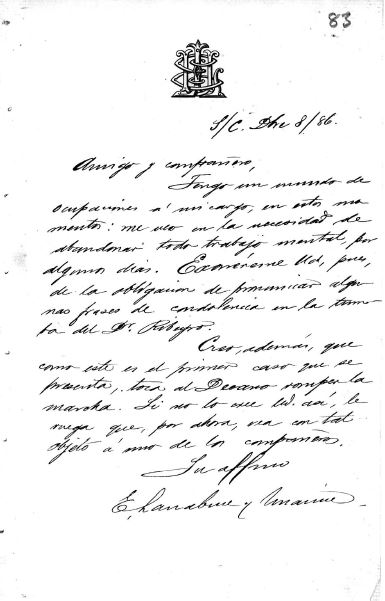 83
S/C. Dbre 8/86.
Amigo y compañero,
Tengo un mundo de
ocupaciones á mi cargo, en estos mo
mentos: me veo en la necesidad de
abandonar todo trabajo mental, por
algunos dias. Exonéreme Ud, pues,
de la obligacion de pronunciar algu
nas frases de condolencia en la tum
ba del Dr. Ribeyro.
Creo, además, que
como este es el primer caso que se
presenta, toca al Decano romper la
marcha. Si no lo cree Ud. así, le
ruega que, por ahora, vea con tal
objeto á uno de los compañeros.
Su affmo
E. Larrabure y Unanue